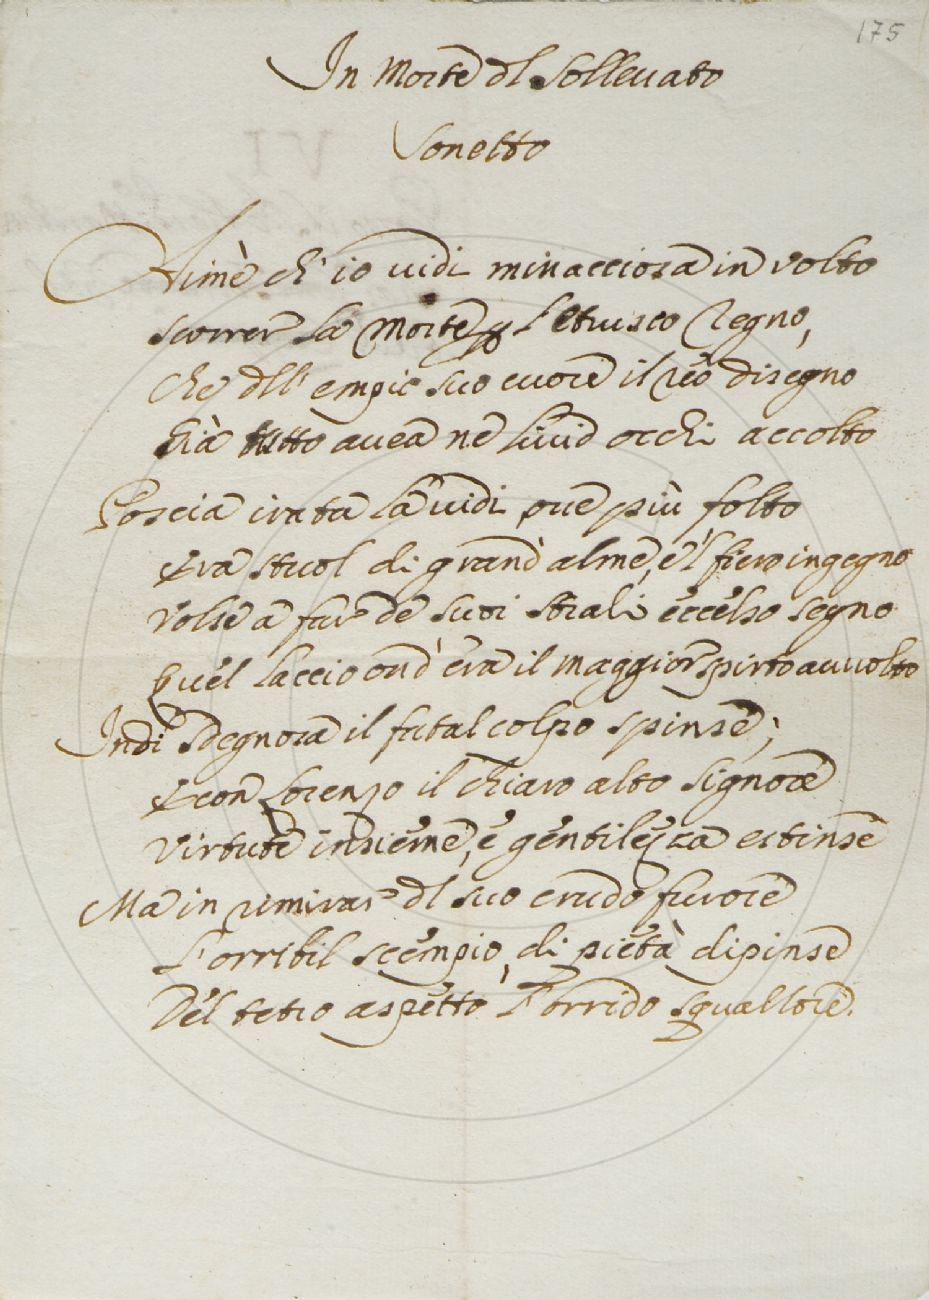 175
In Morte dl Sollevato
Sonetto
Aimè ch' io vidi minacciosa in volto
scorrer la Morte p l'Etrusco Regno,
Che dll' empio suo cuore il reo disegno
Già tutto avea ne lividi occhi accolto
Poscia irata la vidi, ove più folto
Era stuol di grand' alme, e'l fiero ingegno
Volse a far de suoi strali eccelso segno
Quel laccio ond' era il maggior spirto avvolto
Indi sdegnosa il fatal colpo spinse;
E con Lorenzo il chiaro alto Signore
Virtute insieme, e gentilezza estinse
Ma in rimirar dl suo crudo furore
L'orribil scempio, di pietà dipinse
Del tetro aspetto l'orrido squallore.